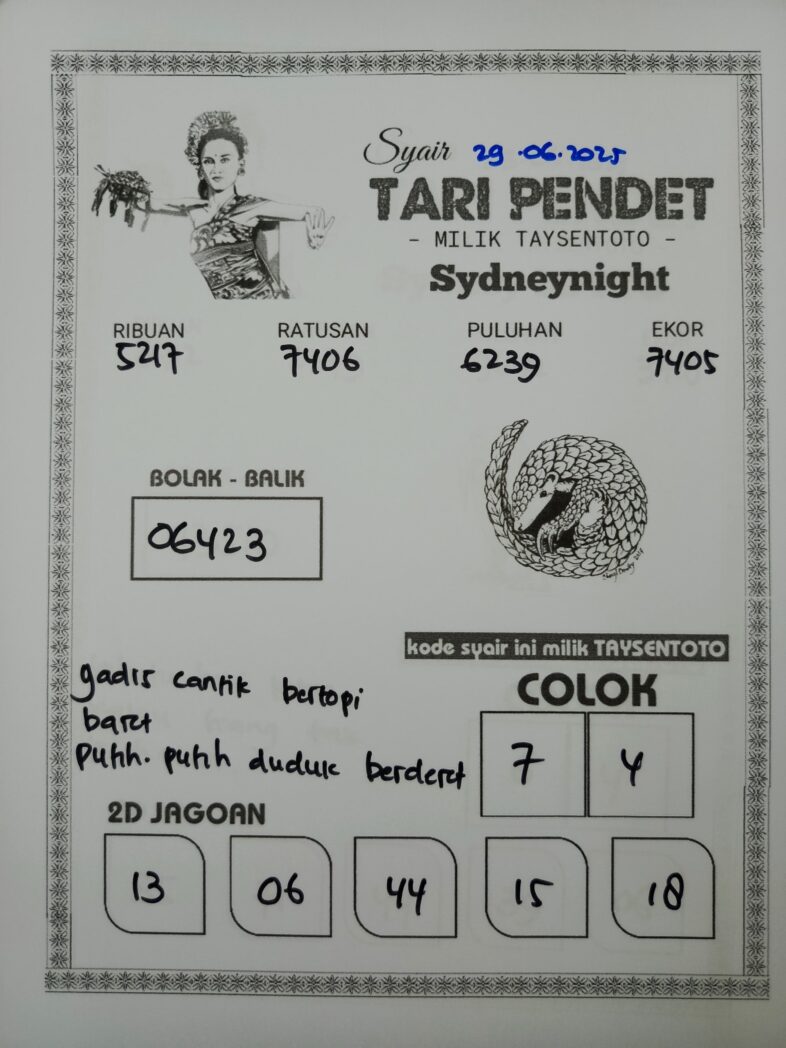 Syair 29.06.2025
TARI PENDET
- MILIK TAYSENTOTO -
Sydneynight
RIBUAN RATUSAN PULUHAN EKOR
5217 7406 6239 7405
BOLAK - BALIK
06423
kode syair ini milik TAYSENTOTO
gadis cantik bertopi
baret
putih-putih duduk berderet
COLOK
7 4
2D JAGOAN
13 06 44 15 18